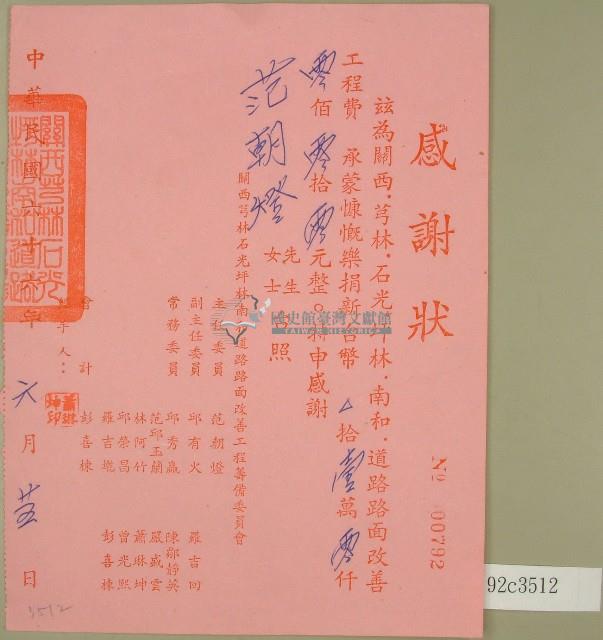 感謝狀
No 00792
茲為關西．芎林．石光．坪林．南和．道路路面改善
工程費 承蒙慷慨樂捐新台幣 △拾壹萬零仟
零佰零拾零元整。特申感謝
范朝燈 先生 女士 台照
關西芎林石光坪林南和道路路面改善工程籌備委員會
主任委員 范朝燈
副主任委員 邱有火 羅吉回
常務委員 邱秀嬴 陳鄒靜英
范邱玉蘭 嚴盛雲
林阿竹 蕭琳坤
邱榮昌 曾光熙
羅吉 彭喜棟
會計 彭喜棟
手人：
中華民國六十六年六月 日
國史館臺灣文獻館
TAIWAN HISTORICA
92c3512
3512